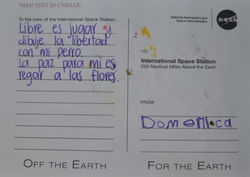 NEED TEXT IN CYRILLIC
To the crew of the International Space Station:
Libre es jugar y
dibuje la libertad
con mi perro.
La paz para mi es
regar a las flores.
OFF THE EARTH
National Aeronautics and
Space Administration
NASA
TO:
International Space Station
250 Nautical Miles Above the Earth
FROM:
Domenica
FOR THE EARTH